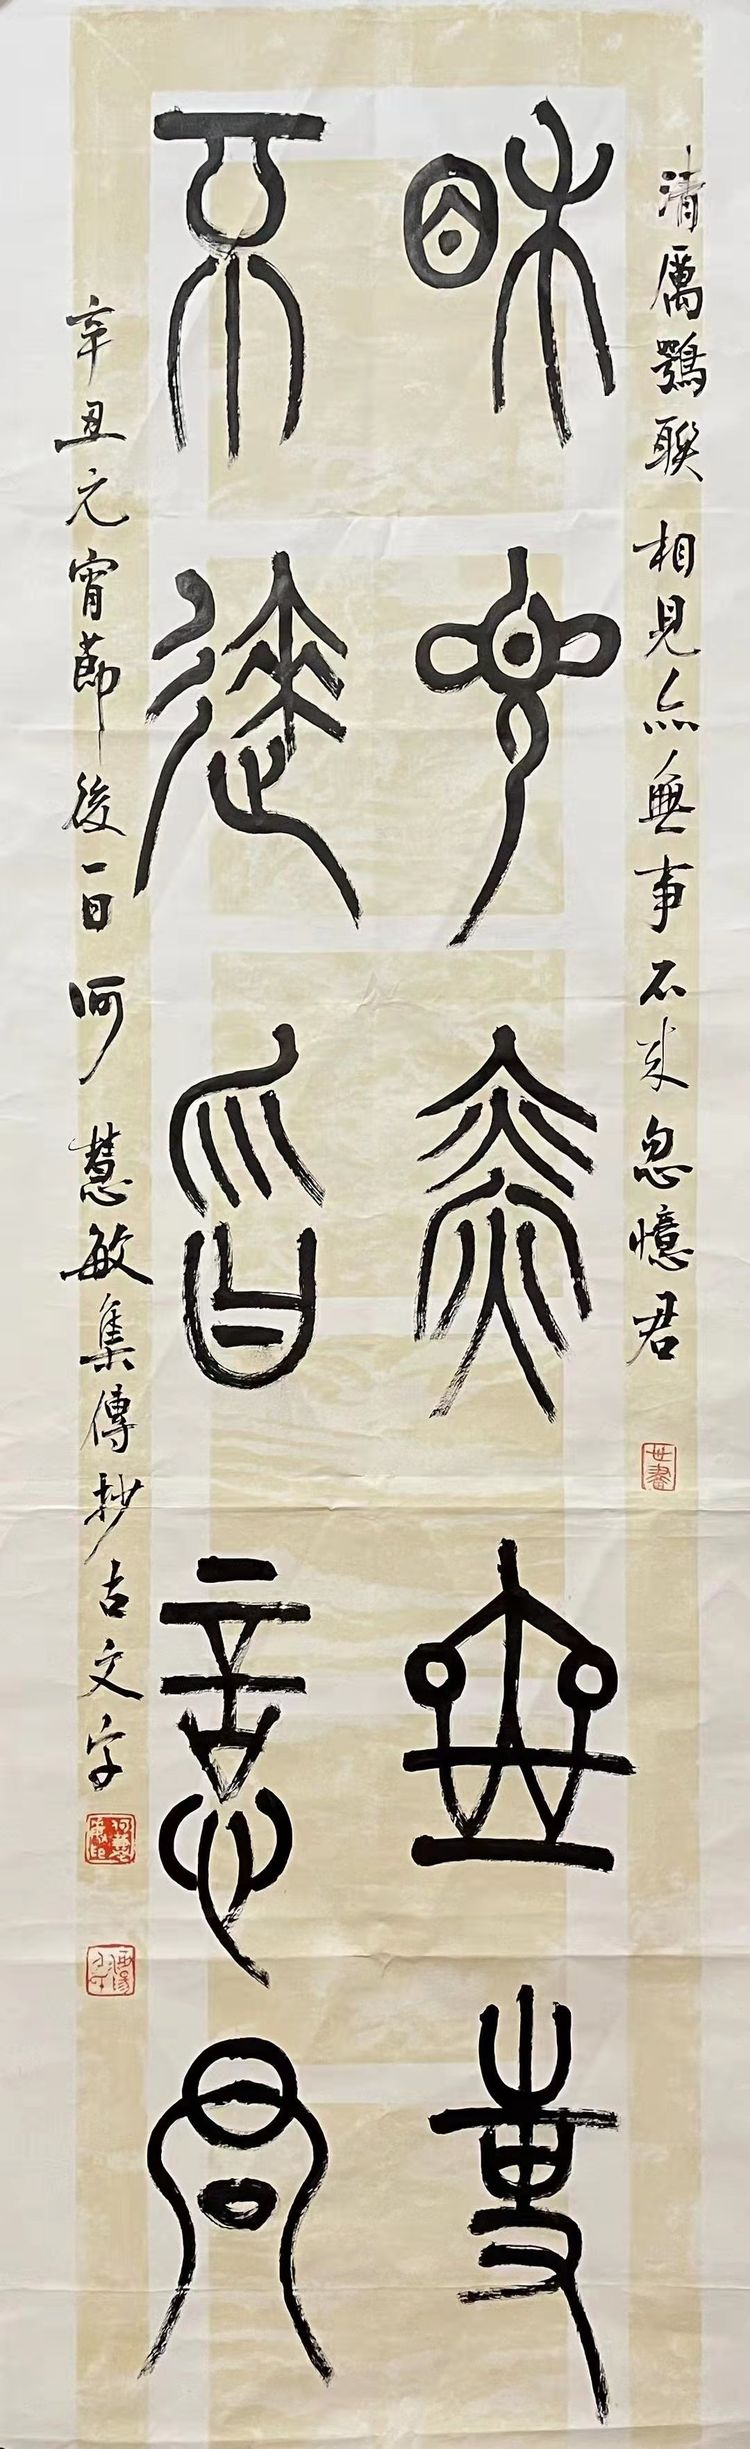 清厲鶚聯 相見亦無事不来忽憶君
相見亦無事
不來忽憶君
辛丑元宵節後一日 何慧敏集傳抄古文字